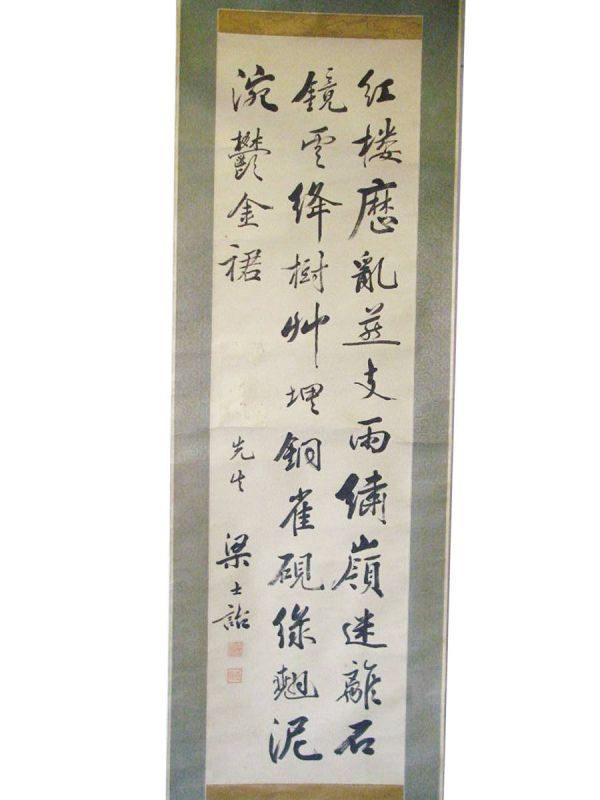 紅樓歷亂燕支雨繡嶺迷離石
鏡雲絳樹艸埋銅雀硯綠翹泥
涴鬱金裙
先生
梁士詒